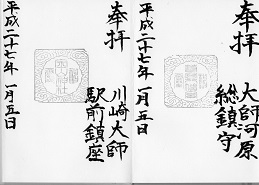 奉拝
大師河原
総鎮守
平成二十七年一月五日
奉拝
川崎大師
駅前鎮座
平成二十七年一月五日